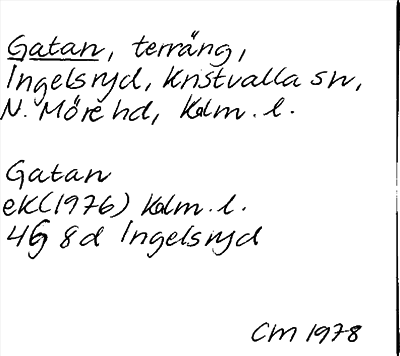 Gatan, terräng,
Ingelsryd, Kristvalla sn,
N. Möre hd, Kalm. l.
Gatan
ek(1976) Kalm. l.
4G 8d Ingelsryd
CM 1978